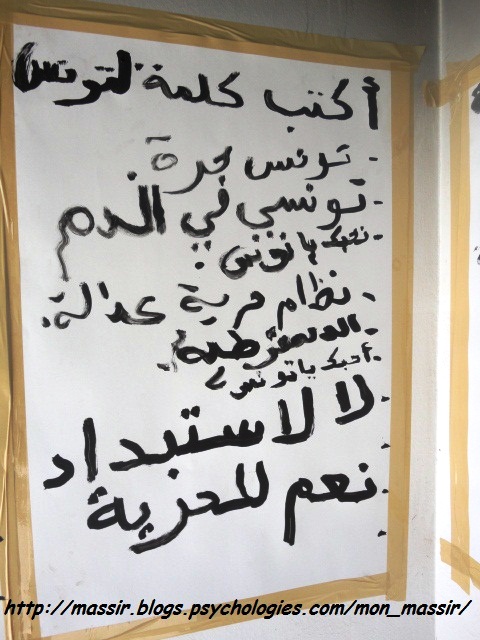 أكتب كلمة لتونس
- تونس حرة
- تونسي في الدم
- نحبك يا تونس
- نظام حرية عدالة
- الديمقراطية
- أحبك يا تونس
- لا لاستبداد
- نعم للحرية
http://massir.blogs.psychologies.com/mon_massir/